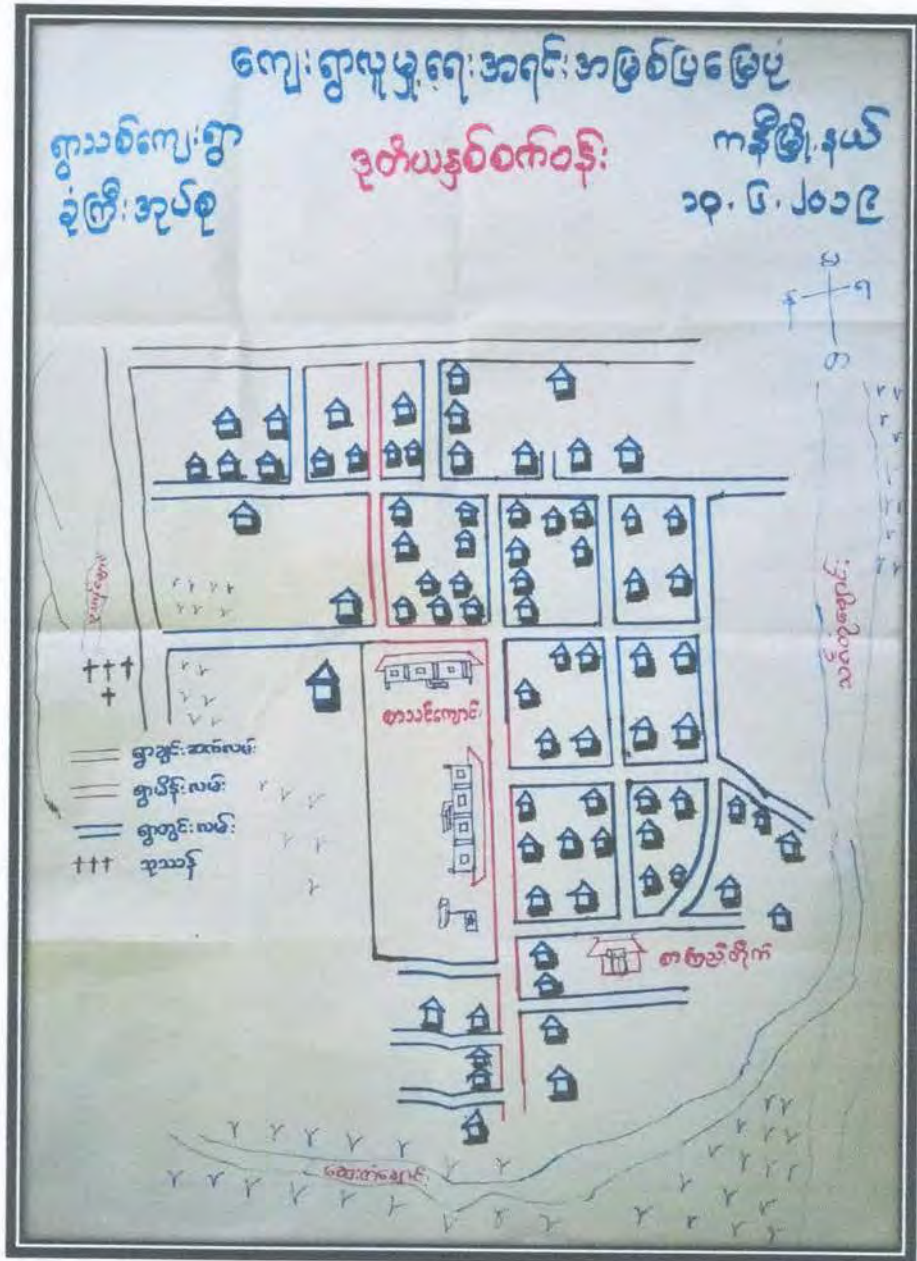 ကျေးရွာလူမှု့ရေးအရင်းအမြစ်ပြမြေပုံ
ရွာသစ်ကျေးရွာ
ခုံကြီးအုပ်စု
ဒုတိယနှစ်စက်ဝန်း
ကနီမြို့နယ်
၁၃.၆.၂၀၁၉
မ
န
ရ
တ
စာသင်ကျောင်း
ရွာချင်းဆက်လမ်း
ရွာမိန်းလမ်း
ရွာတွင်းလမ်း
သုဿာန်
စာကြည့်တိုက်